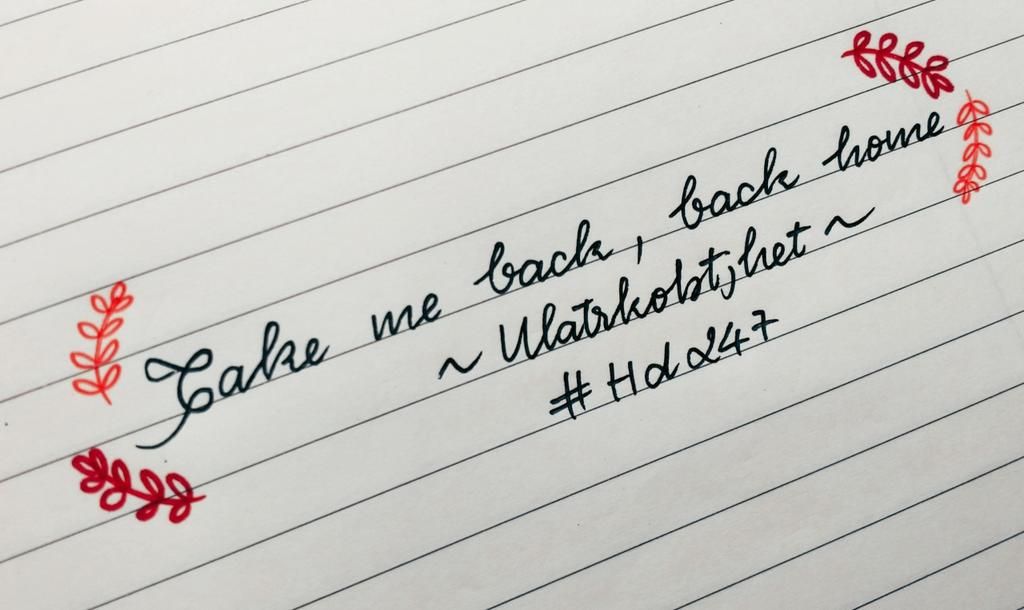 Take me back, back home
~ Ulatrkobtjhet ~
#Hd247